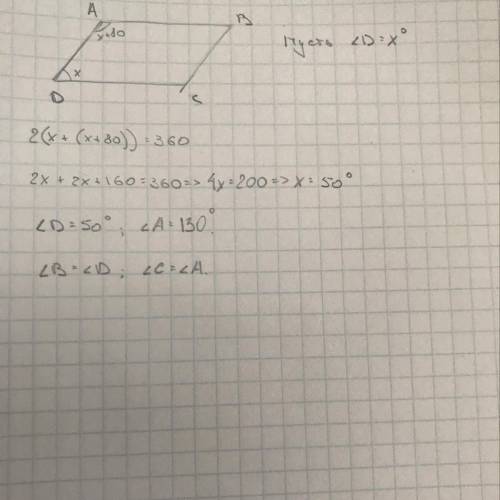 A
B
x+80
x
D
C
Пусть ∠D = x°
2(x + (x+80)) = 360
2x + 2x + 160 = 360 => 4x = 200 => x = 50°
∠D = 50° ; ∠A = 130°.
∠B = ∠D ; ∠C = ∠A.